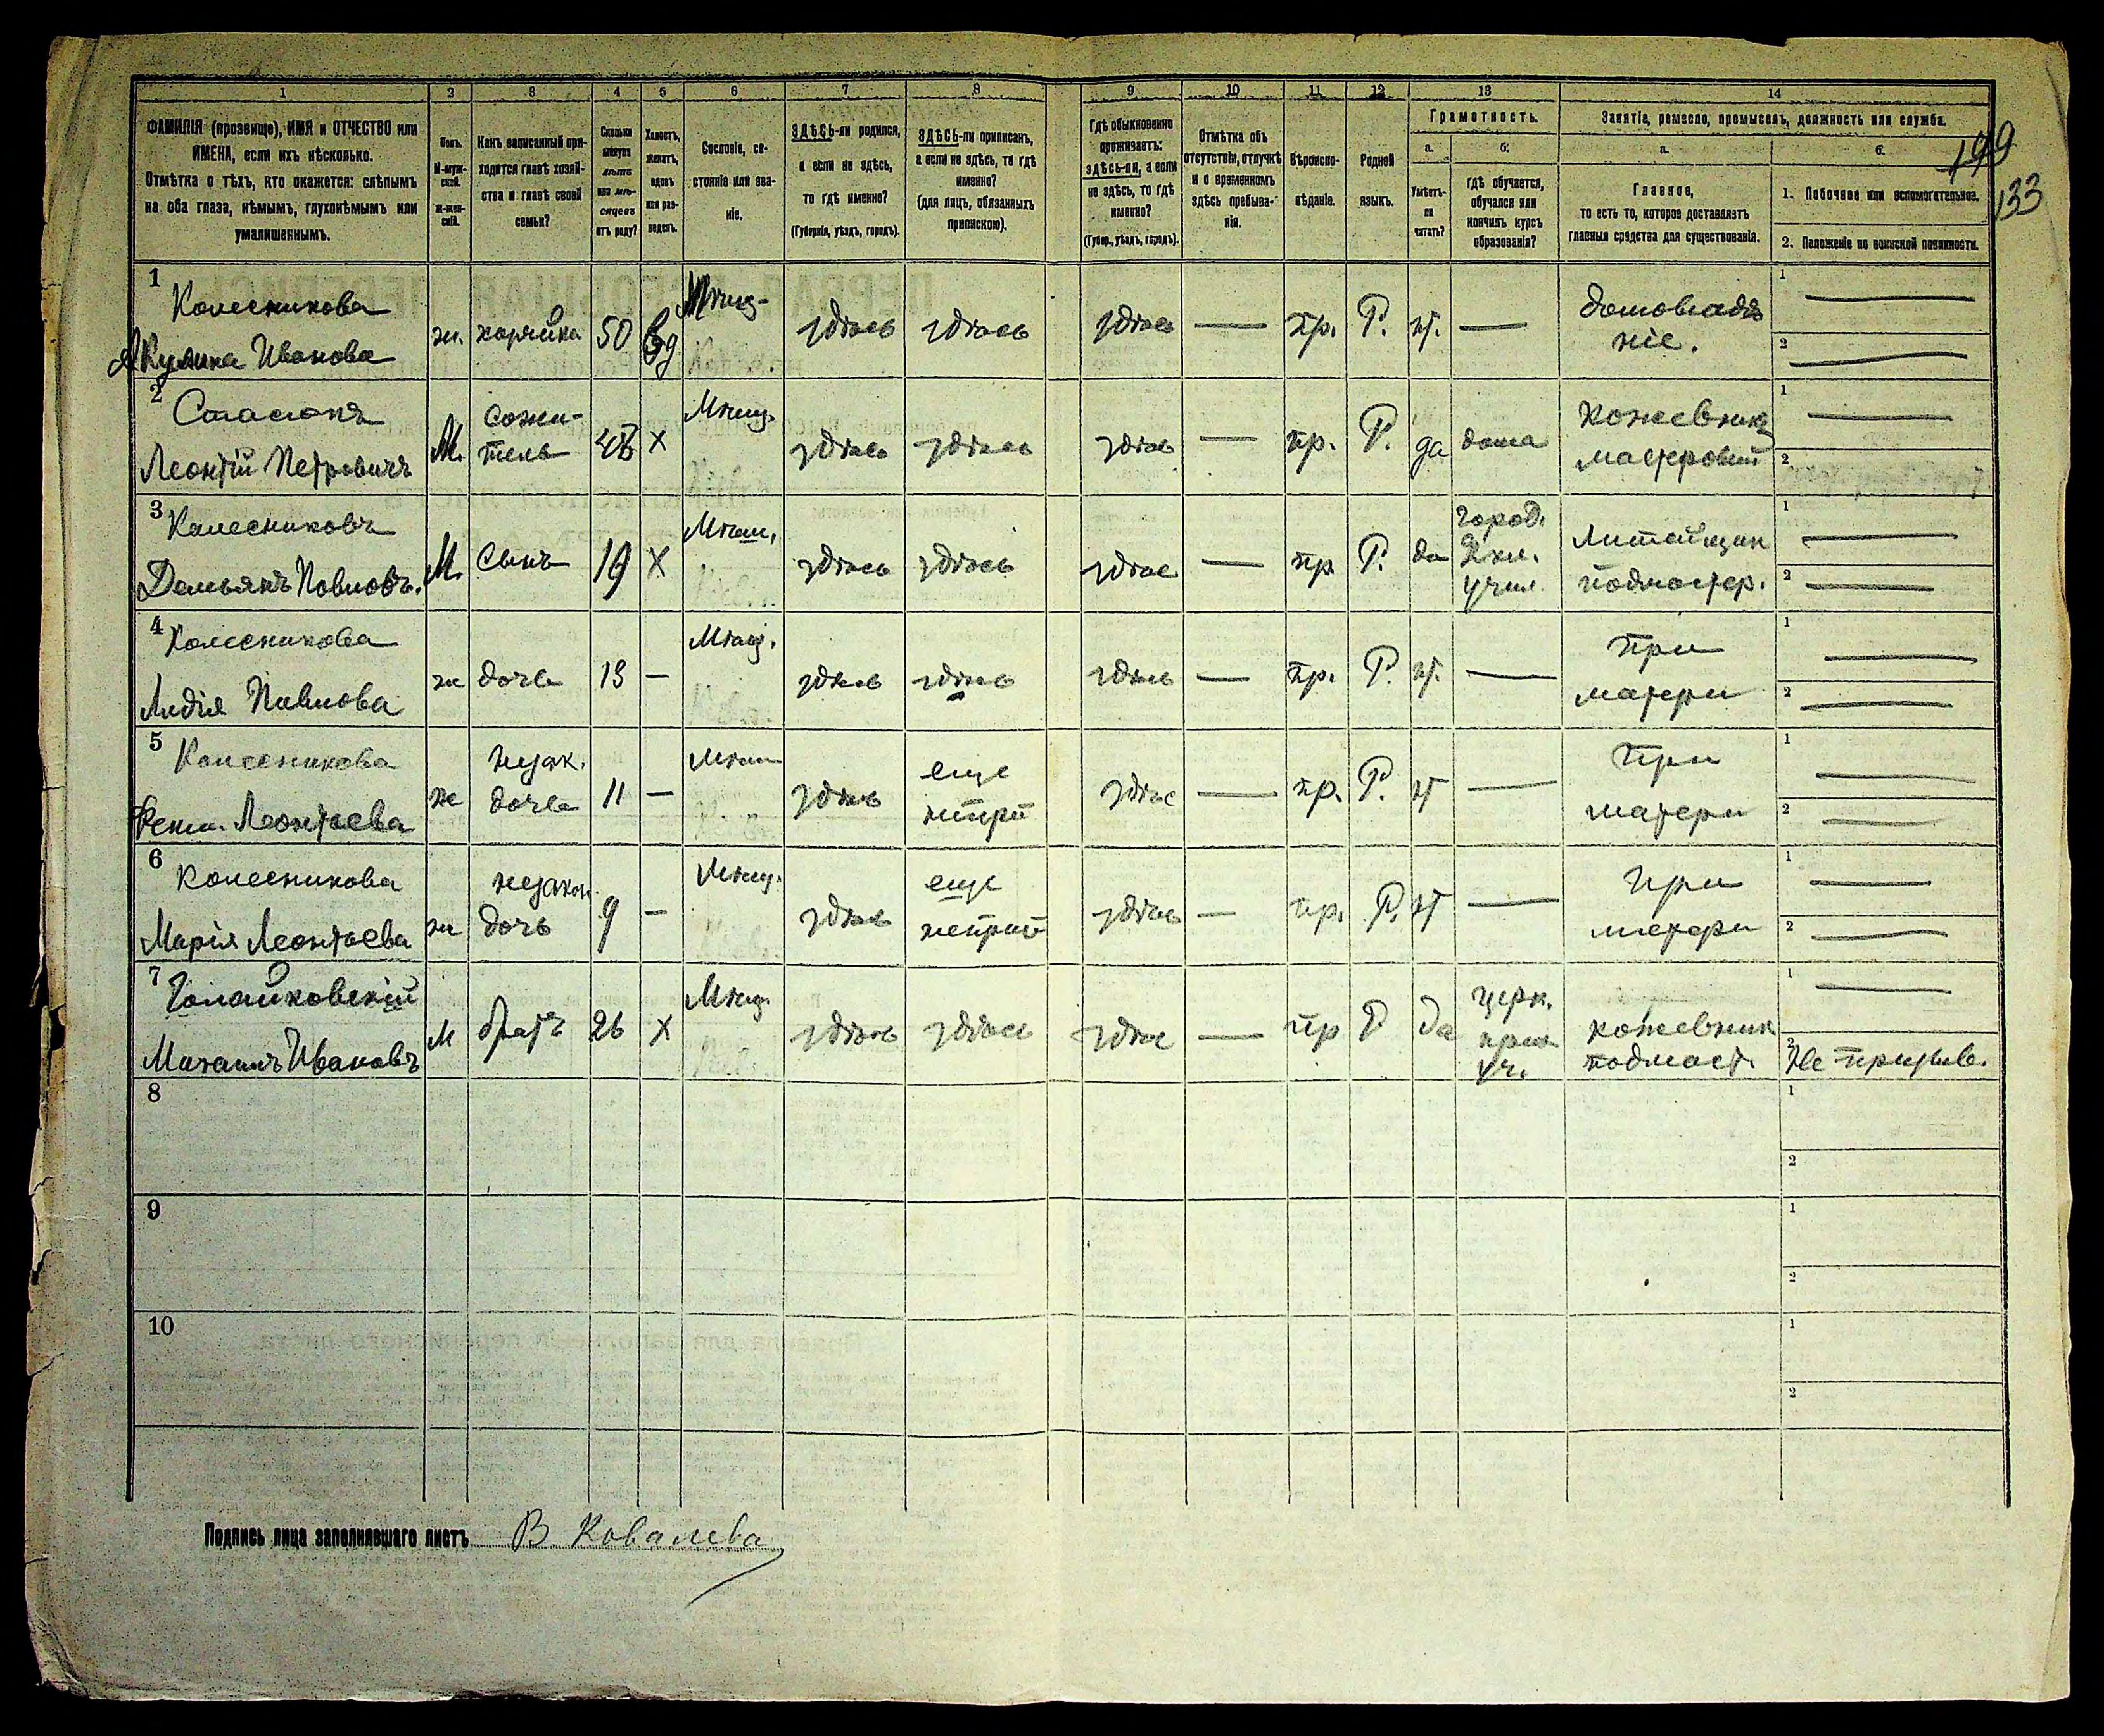 1 2 3 4 5 6 7 8 9 10 11 12 13 14
ФАМИЛІЯ (прозвище), ИМЯ и ОТЧЕСТВО или
ИМЕНА, если ихъ нѣсколько.
Отмѣтка о тѣхъ, кто окажется: слѣпымъ
на оба глаза, нѣмымъ, глухонѣмымъ или
умалишеннымъ.
Полъ.
М-муж-
ской.
ж-жен-
скій.
Какъ записанный при-
ходится главѣ хозяй-
ства и главѣ своей
семьи?
Сколько
минуло
лѣтъ
или мѣ-
сяцевъ
отъ роду?
Холостъ,
женатъ,
вдовъ
или раз-
веденъ.
Сословіе, со-
стояніе или зва-
ніе.
ЗДѢСЬ-ли родился,
а если не здѣсь,
то гдѣ именно?
(Губернія, уѣздъ, городъ).
ЗДѢСЬ-ли приписанъ,
а если не здѣсь, то гдѣ
именно?
(для лицъ, обязанныхъ
припискою).
Гдѣ обыкновенно
проживаетъ:
здѣсь-ли, а если
не здѣсь, то гдѣ
именно?
(Губер., уѣздъ, городъ).
Отмѣтка объ
отсутствіи, отлучкѣ
и о временномъ
здѣсь пребыва-
ніи.
Вѣроиспо-
вѣданіе.
Родной
языкъ.
Грамотность.
а. б.
Умѣетъ-
ли
читать?
гдѣ обучается,
обучался или
кончилъ курсъ
образованія?
Занятіе, ремесло, промыселъ, должность или служба.
а. б.
Главное,
то есть то, которое доставляетъ
главныя средства для существованія.
1. Побочное или вспомогательное.
2. Положеніе по воинской повинности.
199
133
1 Колесникова
Акулина Иванова
ж. хозяйка 50 Вд
Мѣщ-
здѣсь здѣсь здѣсь — пр. Р. нѣ. —
домовладѣ
ніе.
1 —
2 —
2
Леонтій Петровичъ
М.
сожи-
тель
х
Мѣщ.
здѣсь здѣсь здѣсь — пр. Р. да дома
кожевникъ
мастеровый
1 —
2
3 Колесниковъ
Демьянъ Павловъ.
М. сынъ 19 х
Мѣщ.
здѣсь здѣсь здѣс — пр Р. да
город.
учил.
Литейщик
подмастер.
1 —
2 —
4 Колесникова
Лидія Павлова
ж дочь 13 —
Мѣщ.
здѣсь здѣсь здѣсь — пр. Р. нѣ. —
при
матери
1 —
2 —
5 Колесникова
Леонтьева
ж
незак.
дочь
11 —
Мѣщ
здѣсь
еще
непри
здѣс — пр. Р. нѣ —
при
матери
1 —
2 —
6 Колесникова
Марія Леонтьева
ж
незакон.
дочь
9 —
Мѣщ.
здѣсь
еще
непри
здѣсь — пр. Р. нѣ —
при
матери
1 —
2 —
7
Михаилъ Ивановъ
М братъ 26 х
Мѣщ.
здѣсь здѣсь здѣс — пр Р да
церк.
прих
уч.
кожевник
подмаст.
1 —
2 Не призыв.
8
1
2
9
1
2
10
1
2
Подпись лица заполнявшаго листъ В. Ковалева